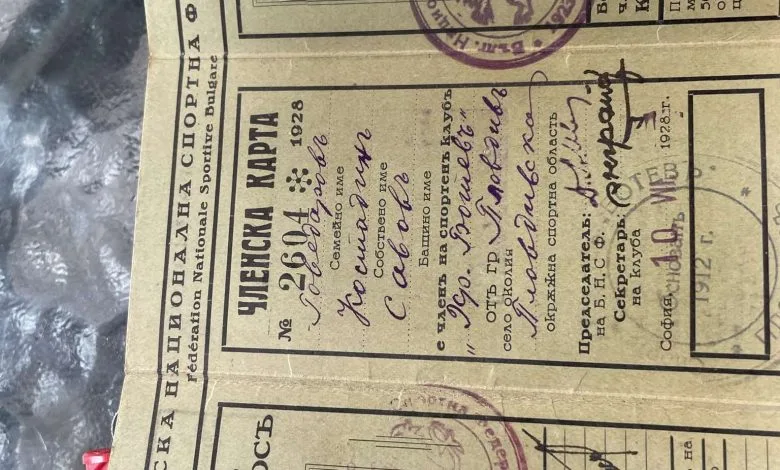 СКА НАЦИОНАЛНА СПОРТНА Ф
Fédération Nationale Sportive Bulgare
ЧЛЕНСКА КАРТА
№ 2604 1928
Говедаровъ
Семейно име
Костадинъ
Собствено име
Савовъ
Бащино име
е членъ на спортенъ клубъ
„Хр. Ботевъ“
отъ гр Пловдивъ
село околия
Пловдивска
окржжна спортна область
Председатель:
на Б. Н. С. Ф.
Секретарь:
на клуба
София, 10 VIII 1928 г.
БОТЕВЪ
Основанъ
1912 г.
Бълг. Нацио
ОСТЬ
на